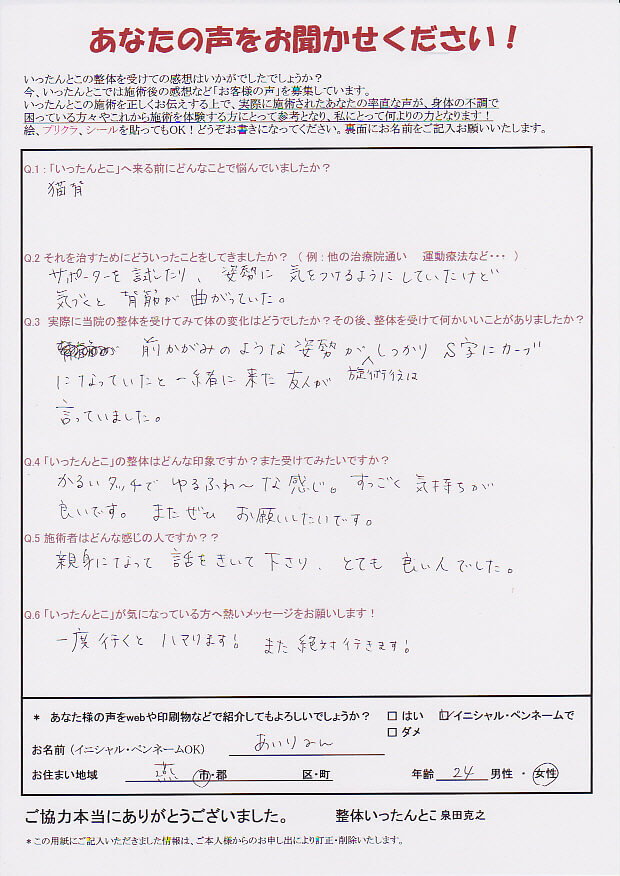 あなたの声をお聞かせください！
いったんとこの整体を受けての感想はいかがでしたでしょうか？
今、いったんとこでは施術後の感想など「お客様の声」を募集しています。
いったんとこの施術を正しくお伝えする上で、実際に施術されたあなたの率直な声が、身体の不調で
困っている方々やこれから施術を体験する方にとって参考となり、私にとって何よりの力となります！
絵、プリクラ、シールを貼ってもOK！どうぞお書きになってください。裏面にお名前をご記入お願いいたします。
Q.1：「いったんとこ」へ来る前にどんなことで悩んでいましたか？
猫背
Q.2 それを治すためにどういったことをしてきましたか？（例：他の治療院通い　運動療法など・・・）
サポーターを試したり、姿勢に気をつけるようにしていたけど
気づくと背筋が曲がっていた。
Q.3 実際に当院の整体を受けてみて体の変化はどうでしたか？その後、整体を受けて何かいいことがありましたか？
前かがみのような姿勢がしっかりS字にカーブ
になっていたと一緒に来た友人が施術後は
言っていました。
Q.4「いったんとこ」の整体はどんな印象ですか？また受けてみたいですか？
かるいタッチでゆるふわ〜な感じ。すっごく気持ちが
良いです。またぜひお願いしたいです。
Q.5 施術者はどんな感じの人ですか？？
親身になって話をきいて下さり、とても良い人でした。
Q.6「いったんとこ」が気になっている方へ熱いメッセージをお願いします！
一度行くとハマります！また絶対行きます！
* あなた様の声をwebや印刷物などで紹介してもよろしいでしょうか？ □ はい □/イニシャル・ペンネームで
□ ダメ
お名前（イニシャル・ペンネームOK） あいりん
お住まい地域 燕 市・郡 区・町 年齢 24 男性・女性
ご協力本当にありがとうございました。 整体いったんとこ 泉田克之
* この用紙にご記入いただきました情報は、ご本人様からのお申し出により訂正・削除いたします。